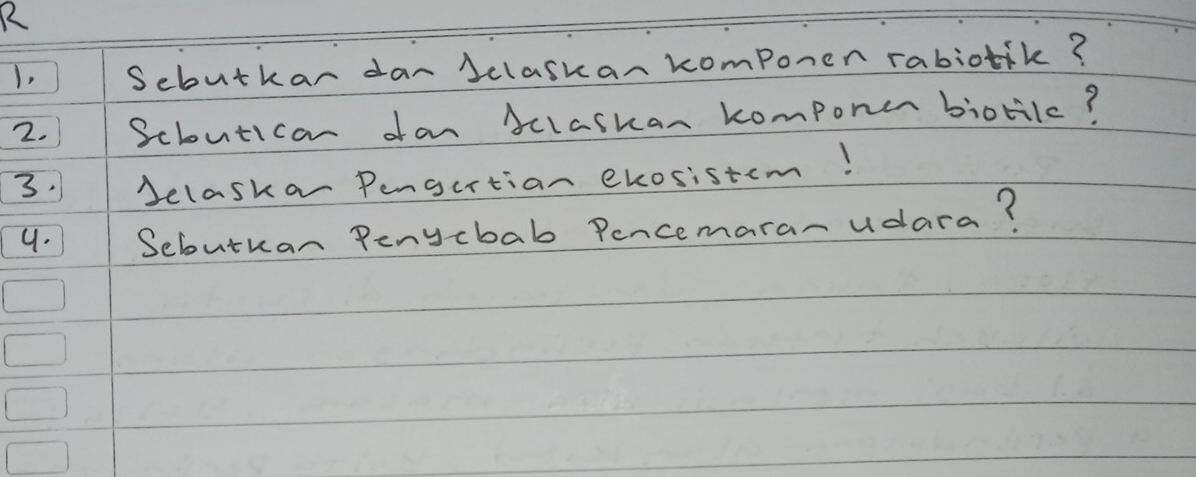 R
1. Sebutkan dan Jelaskan komponen rabiotik?
2. Sebutkan dan Jelaskan komponen biotik?
3. Jelaskan Pengertian ekosistem!
4. Sebutkan Penyebab Pencemaran udara?